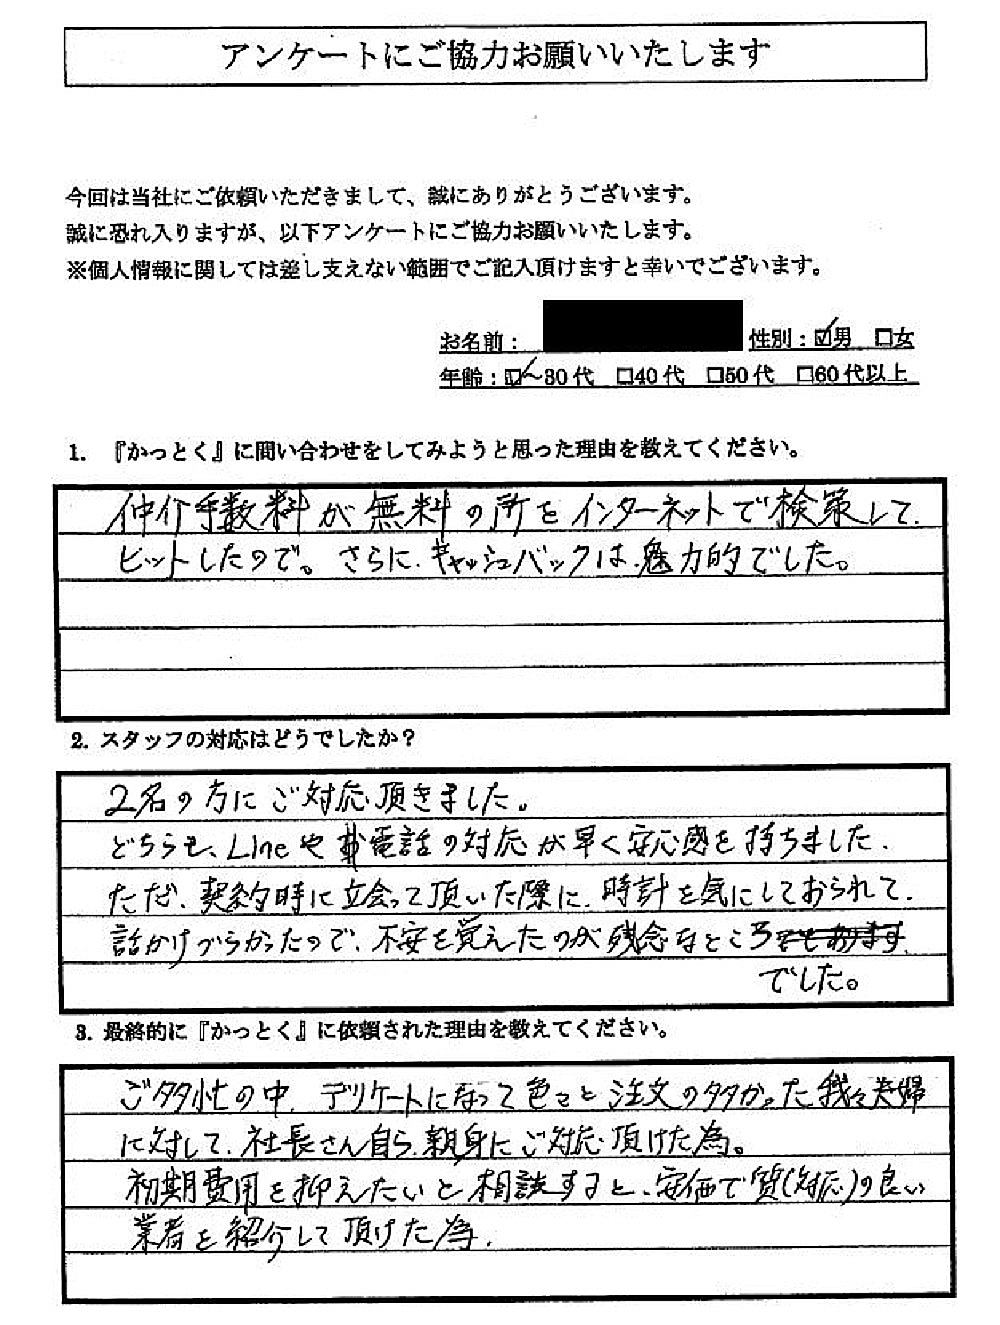 アンケートにご協力お願いいたします
今回は当社にご依頼いただきまして、誠にありがとうございます。
誠に恐れ入りますが、以下アンケートにご協力お願いいたします。
※個人情報に関しては差し支えない範囲でご記入頂けますと幸いでございます。
お名前： 性別：☑男 □女
年齢：☑～30代 □40代 □50代 □60代以上
1. 『かっとく』に問い合わせをしてみようと思った理由を教えてください。
仲介手数料が無料の所をインターネットで検策して、
ヒットしたので。さらに、キャッシュバックは、魅力的でした。
2. スタッフの対応はどうでしたか？
2名の方にご対応頂きました。
どちらも、Lineや電話の対応が早く安心感を持ちました、
ただ、契約時に立会って頂いた際に、時計を気にしておられて、
話かけづらかったので、不安を覚えたのが残念なところでもあります
でした。
3. 最終的に『かっとく』に依頼された理由を教えてください。
ご多忙の中、デリケートになって色々と注文の多かった我々夫婦
に対して、社長さん自ら、親身にご対応頂けた為。
初期費用を抑えたいと相談すると、安価で質(対応)の良い
業者を紹介して頂けた為、